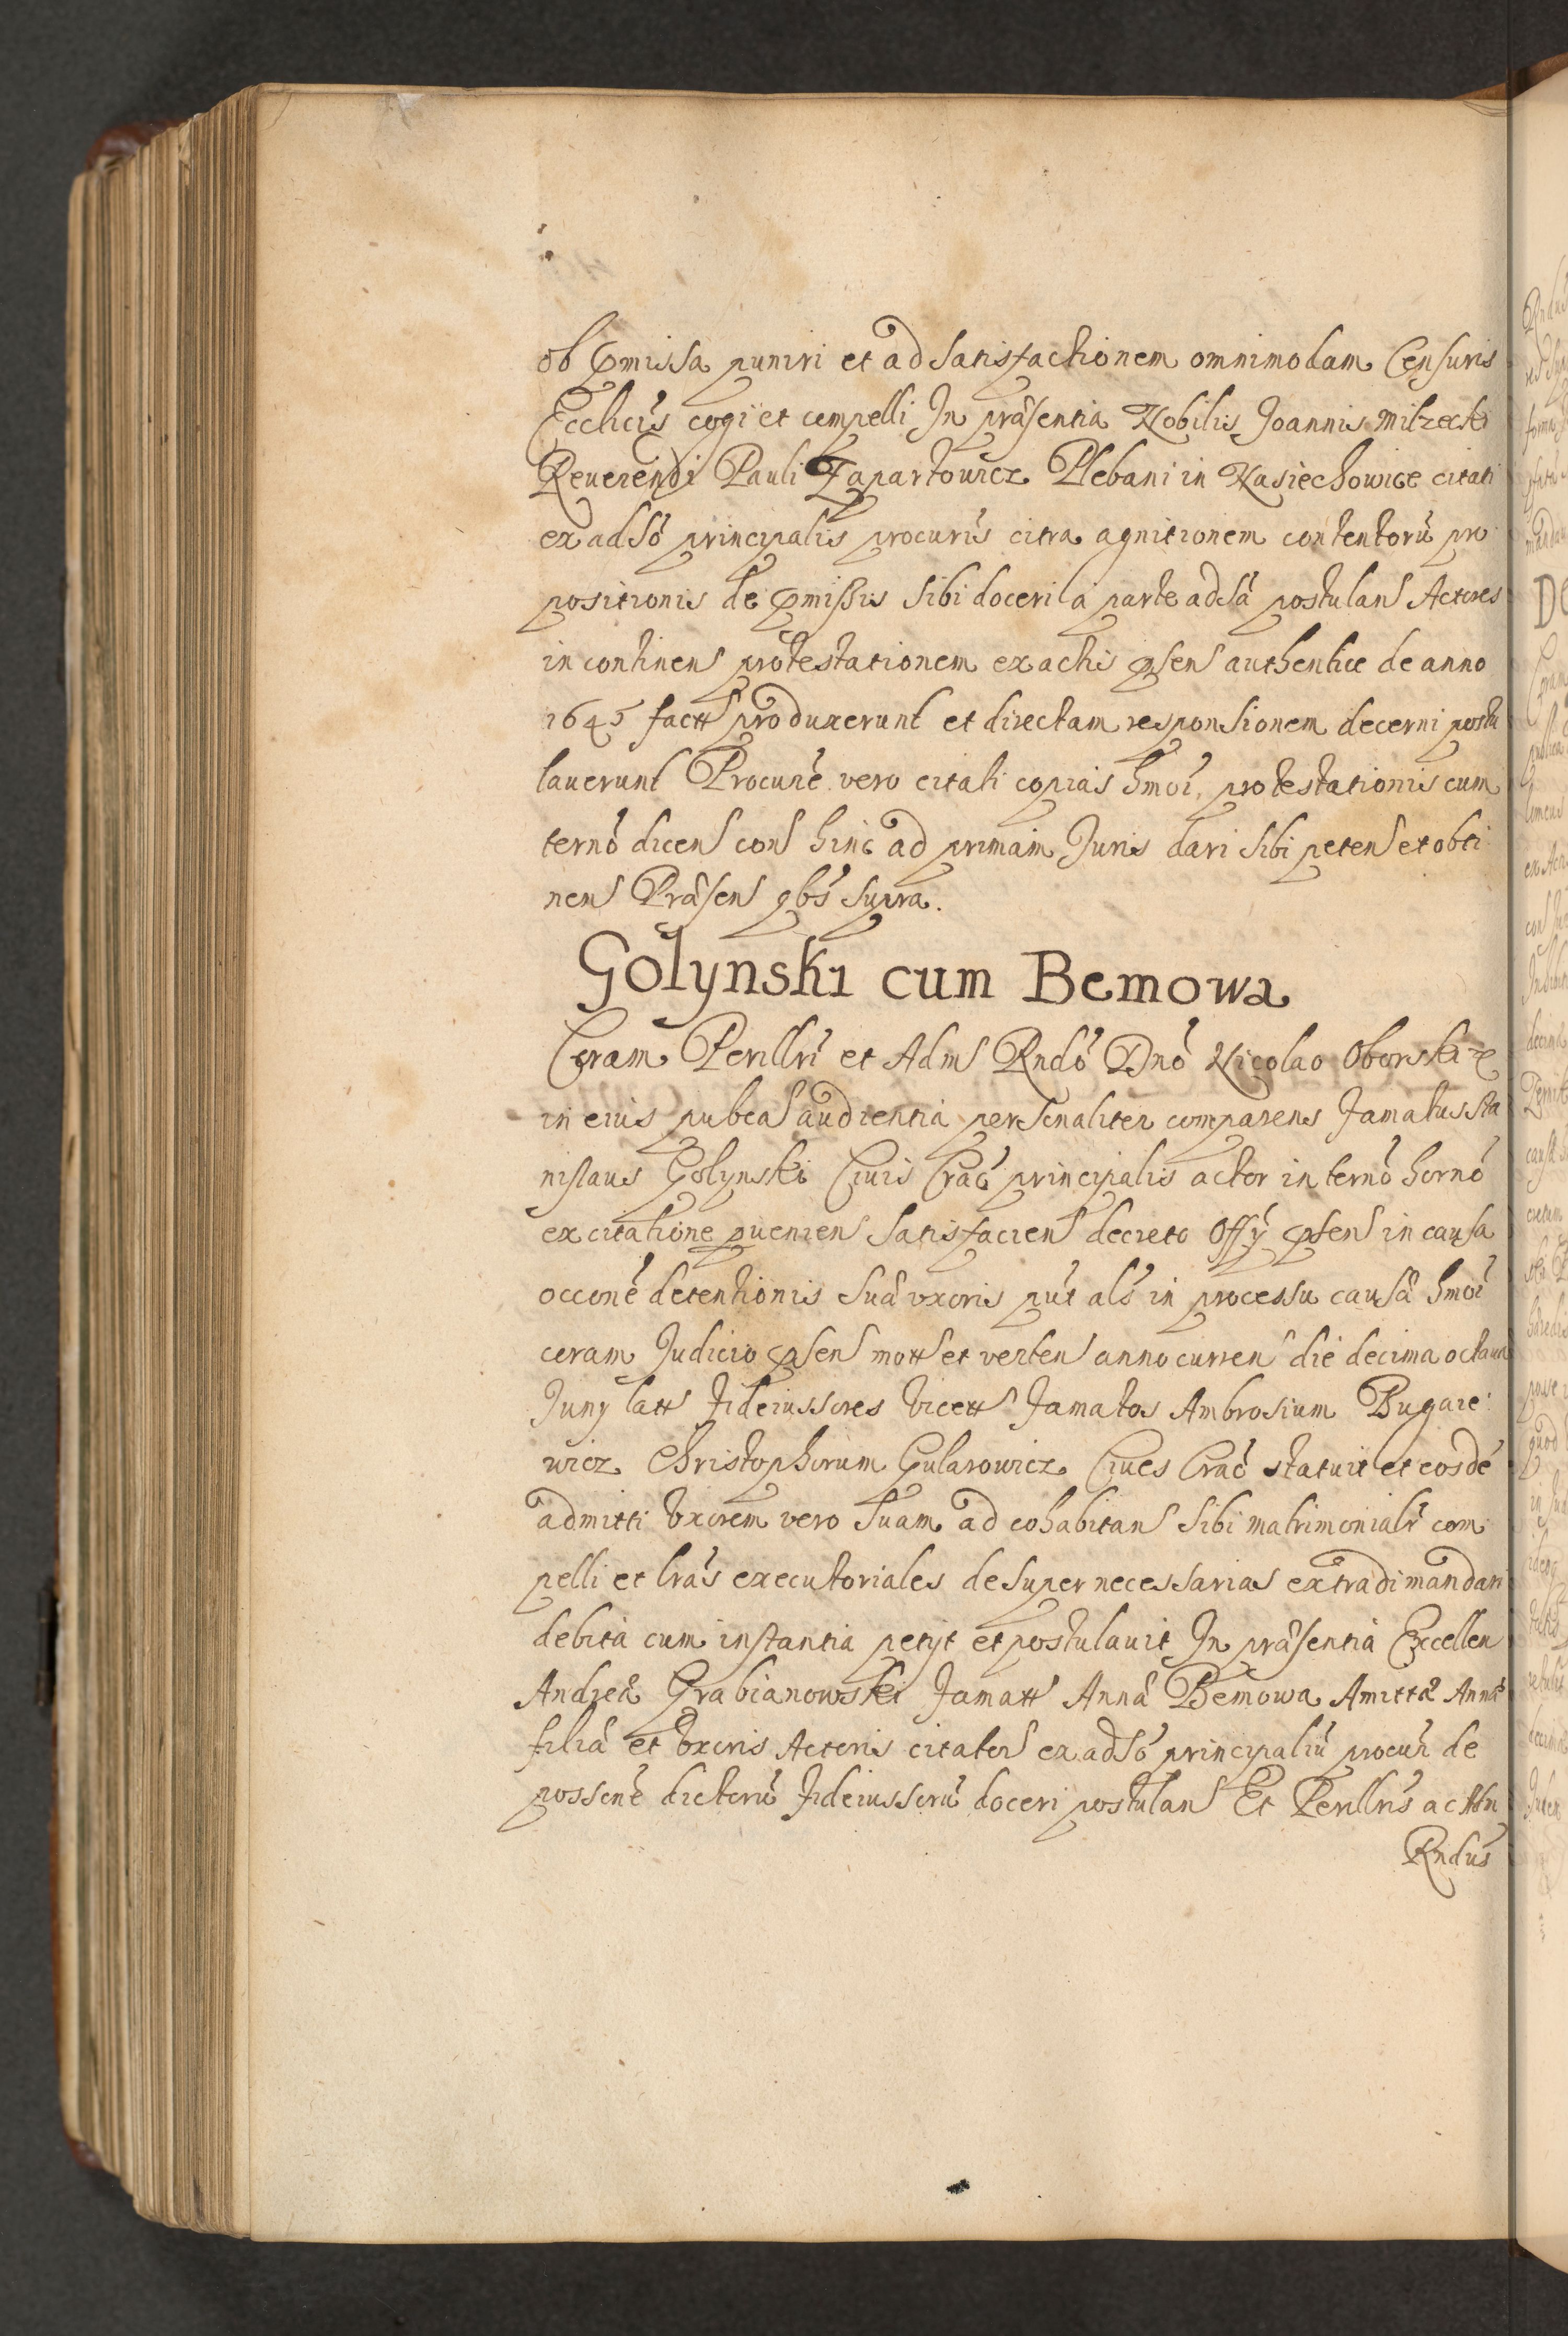 ob pmissa puniri et ad satisfactionem omnimodam Censuris
Ecclicis cogi et compelli In præsentia Nobilis Joannis Milzecki
Reuerendi Pauli Zapartowicz Plebani in Nasiechowice citati
ex adso principalis procuris citra agnitionem contentorū pro
positionis de pmissis sibi doceri a parte adsa postulans Actores
in continens protestationem ex actis psens authentice de anno
1645 factt produxerunt et directam responsionem decerni postu
lauerunt Procure vero citati copias hmoi protestationis cum
terno dicens cons hinc ad primam Juris dari sibi petens et obti
nens Præsens qbs supra.
Golynski cum Bemowa
Coram Perillri et Adm Rndo Dno Nicolao Oborski
in eius publca audientia personaliter comparens Famatus Sta
nislaus Golynski Ciuis Crac principalis actor in terno horno
ex citatione pueniens satisfaciens decreto Offy psens in causa
occone detentionis suæ vxoris put als in processu causæ hmoi
coram Judicio psens mott et verten anno curren die decima octaua
Juny latt Fideiussores vicett Famatos Ambrosium Bugaie
wicz Christophorum Gularowicz Ciues Crac statuit et eosdē
admitti vxorem vero suam ad cohabitans sibi matrimonialr com
pelli et lras executoriales desuper necessarias extradi mandari
debita cum instantia petyt et postulauit In præsentia Excellen
Andreæ Grabianowski Famatt Annæ Bemowa Amittæ Annæ
filiæ et vxoris Actoris citator ex adso principaliū procur de
possone dictorū Fideiussorū doceri postulans Et Perillris ac Adm
Rndus